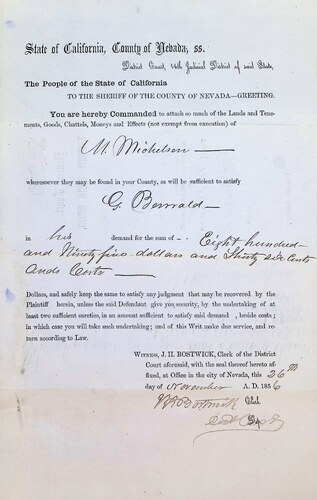 State of California, County of Nevada, ss.
District Court, 14th Judicial District of said State,
The People of the State of California
TO THE SHERIFF OF THE COUNTY OF NEVADA—GREETING.
You are hereby Commanded to attach so much of the Lands and Tene-
ments, Goods, Chattels, Moneys and Effects (not exempt from execution) of
M. Mickelsen —
wheresoever they may be found in your County, as will be sufficient to satisfy
G. Berwald —
in his demand for the sum of - Eight hundred
and Ninety five dollars and Thirty six Cents
and Costs —
Dollars, and safely keep the same to satisfy any judgment that may be recovered by the
Plaintiff herein, unless the said Defendant give you security, by the undertaking of at
least two sufficient sureties, in an amount sufficient to satisfy said demand , beside costs ;
in which case you will take such undertaking ; and of this Writ make due service, and re-
turn according to Law.
WITNESS, J. H. BOSTWICK, Clerk of the District
Court aforesaid, with the seal thereof hereto af-
fixed, at Office in the city of Nevada, this 26th
day of November A. D. 1856
J H Bostwick Clerk.
Dep.